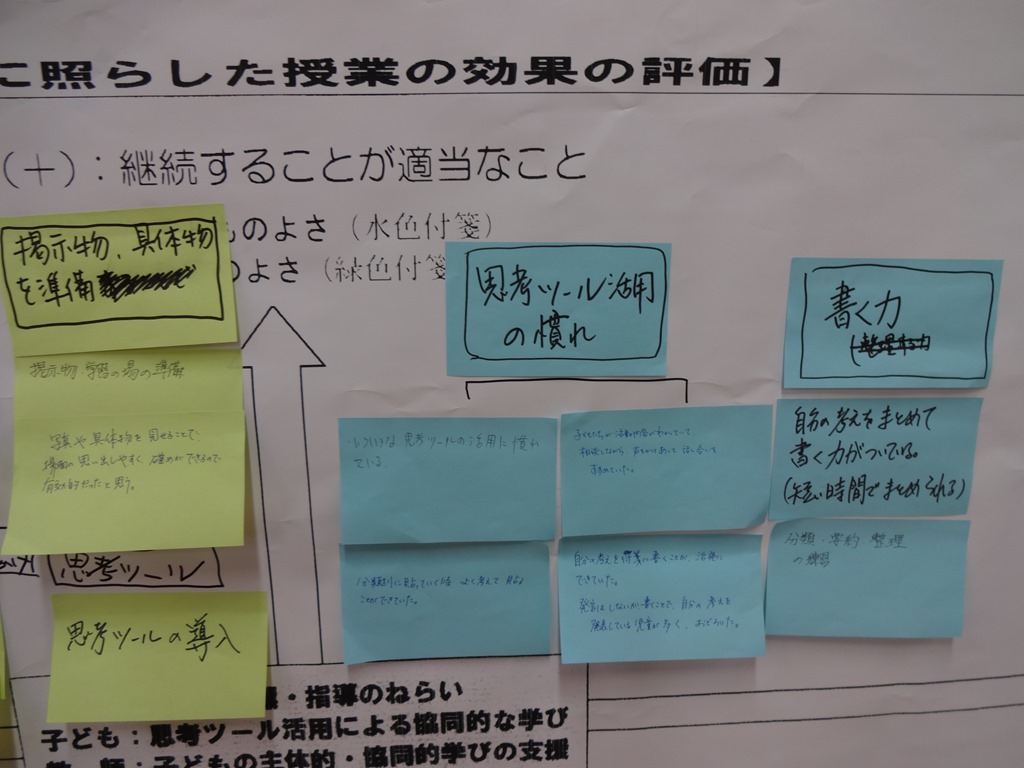 に照らした授業の効果の評価】
(＋)：継続することが適当なこと
ものよさ（水色付箋）
のよさ（緑色付箋
掲示物、具体物
を準備
掲示物・学習の場の準備
写真や具体物を見せることで、
場面の思い出しやすく、確めができるので
有効的だったと思う。
思考ツール
思考ツールの導入
思考ツール活用
の慣れ
いろいろな思考ツールの活用に慣れ
ている
子どもたちが活動内容がわかっていて、
相談しながら
すすめていた。
分類別に貼っていく時 よく考えて貼る
ことができていた。
自分の考えを付箋に書くことが、活発に
できていた。
発言はしないが書くことで、自分の考えを
発表している児童が多く、おどろいた。
書く力
(整理する力
自分の考えをまとめて
書く力がついている。
(短い時間でまとめられる)
分類・要約・整理
の練習
・指導のねらい
子ども：思考ツール活用による協同的な学び
教 師：子どもの主体的・協同的学びの支援